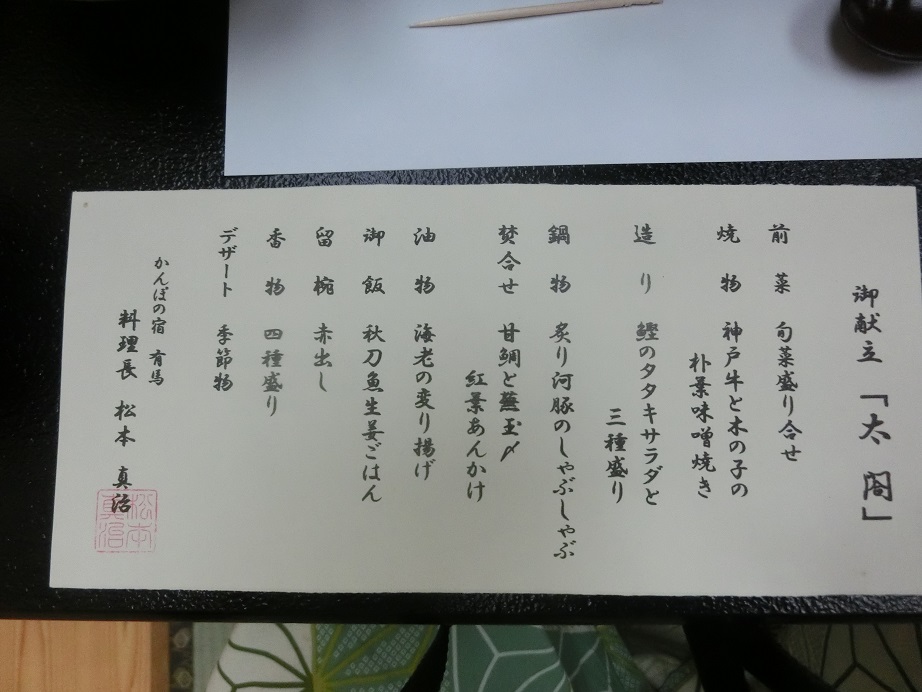 御献立 「太閤」
前菜 旬菜盛り合せ
焼物 神戸牛と木の子の
朴葉味噌焼き
造り 鰹のタタキサラダと
三種盛り
鍋物 炙り河豚のしゃぶしゃぶ
焚合せ 甘鯛と蕪玉〆
紅葉あんかけ
油物 海老の変り揚げ
御飯 秋刀魚生姜ごはん
留椀 赤出し
香物 四種盛り
デザート 季節物
かんぽの宿 有馬
料理長 松本 真治
松本
真治